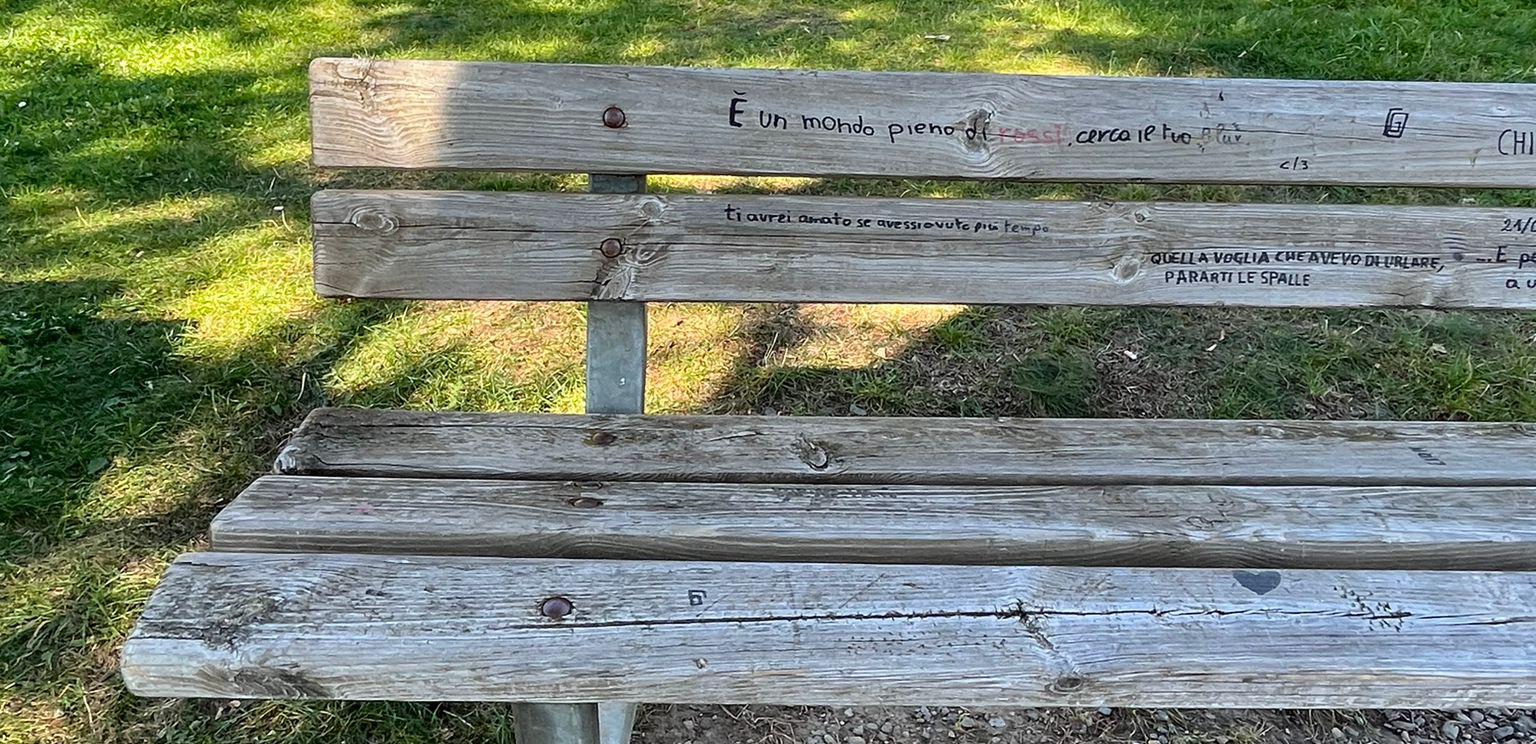 È un mondo pieno di rossi, cerca il tuo blu.
c/3
CHI
ti avrei amato se avessi avuto più tempo
21/0
QUELLA VOGLIA CHE AVEVO DI URLARE,
PARARTI LE SPALLE
...E pe
a u